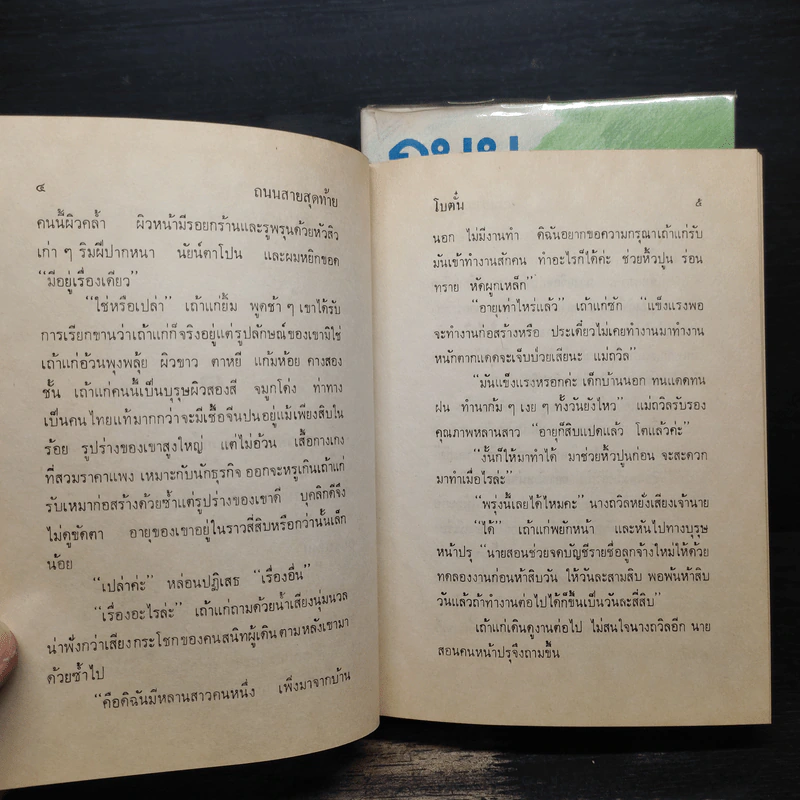 ถนน
๔
ถนนสายสุดท้าย
คนนี้ผิวคล้ำ ผิวหน้ามีรอยกร้านและรูพรุนด้วยหัวสิว
เก่า ๆ ริมฝีปากหนา นัยน์ตาโปน และผมหยิกขอด
“มีอยู่เรื่องเดียว”
“ใช่หรือเปล่า” เถ้าแก่ยิ้ม พูดช้า ๆ เขาได้รับ
การเรียกขานว่าเถ้าแก่ก็จริงอยู่แต่รูปลักษณ์ของเขามิใช่
เถ้าแก่อ้วนพุงพลุ้ย ผิวขาว ตาหยี แก้มห้อย คางสอง
ชั้น เถ้าแก่คนนี้เป็นบุรุษผิวสองสี จมูกโด่ง ท่าทาง
เป็นคนไทยแท้มากกว่าจะมีเชื้อจีนปนอยู่แม้เพียงสิบใน
ร้อย รูปร่างของเขาสูงใหญ่ แต่ไม่อ้วน เสื้อกางเกง
ที่สวมราคาแพง เหมาะกับนักธุรกิจ ออกจะหรูเกินเถ้าแก่
รับเหมาก่อสร้างด้วยซ้ำแต่รูปร่างของเขาดี บุคลิกดีจึง
ไม่ดูขัดตา อายุของเขาอยู่ในราวสี่สิบหรือกว่านั้นเล็ก
น้อย
“เปล่าค่ะ” หล่อนปฏิเสธ “เรื่องอื่น”
“เรื่องอะไรล่ะ” เถ้าแก่ถามด้วยน้ำเสียงนุ่มนวล
น่าฟังกว่าเสียงกระโชกของคนสนิทผู้เดินตามหลังเขามา
ด้วยซ้ำไป
“คือดิฉันมีหลานสาวคนหนึ่ง เพิ่งมาจากบ้าน
โบตั๋น
๕
นอก ไม่มีงานทำ ดิฉันอยากขอความกรุณาเถ้าแก่รับ
มันเข้าทำงานสักคน ทำอะไรก็ได้ค่ะ ช่วยหิ้วปูน ร่อน
ทราย หัดผูกเหล็ก”
“อายุเท่าไหร่แล้ว” เถ้าแก่ซัก “แข็งแรงพอ
จะทำงานก่อสร้างหรือ ประเดี๋ยวไม่เคยทำงานมาทำงาน
หนักตากแดดจะเจ็บป่วยเสียนะ แม่ถวิล”
“มันแข็งแรงหรอกค่ะ เด็กบ้านนอก ทนแดดทน
ฝน ทำนาก้ม ๆ เงย ๆ ทั้งวันยังไหว” แม่ถวิลรับรอง
คุณภาพหลานสาว “อายุก็สิบแปดแล้ว โตแล้วค่ะ”
“งั้นก็ให้มาทำได้ มาช่วยหิ้วปูนก่อน จะสะดวก
มาทำเมื่อไรล่ะ”
“พรุ่งนี้เลยได้ไหมคะ” นางถวิลหยั่งเสียงเจ้านาย
“ได้” เถ้าแก่พยักหน้า และหันไปทางบุรุษ
หน้าปรุ “นายสอนช่วยจดบัญชีรายชื่อลูกจ้างใหม่ให้ด้วย
ทดลองงานก่อนห้าสิบวัน ให้วันละสามสิบ พอพ้นห้าสิบ
วันแล้วถ้าทำงานต่อไปได้ก็ขึ้นเป็นวันละสี่สิบ”
เถ้าแก่เดินดูงานต่อไป ไม่สนใจนางถวิลอีก นาย
สอนคนหน้าปรุจึงถามขึ้น